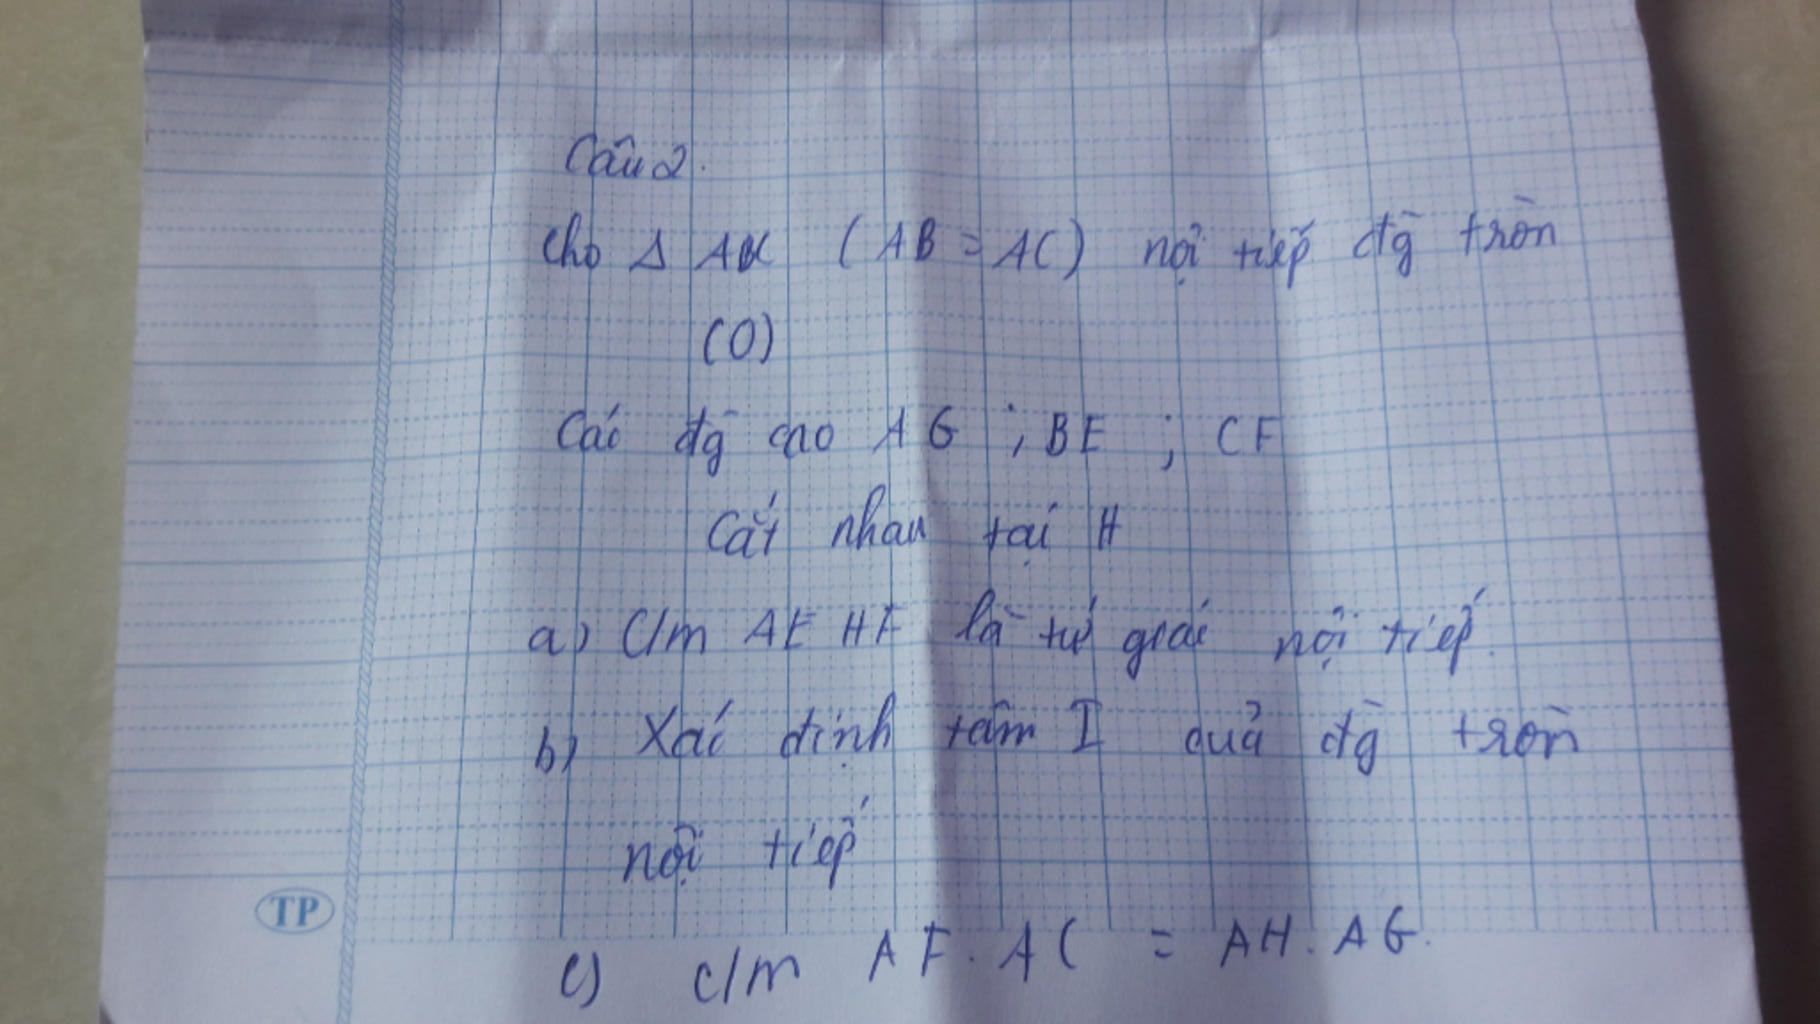 Câu 2.
Cho Δ ABC (AB = AC) nội tiếp đg tròn
(O)
Các đg cao AG ; BE ; CF
Cắt nhau tại H
a) C/m AEHF là tứ giác nội tiếp.
b) Xác định tâm I của đg tròn
nội tiếp
c) c/m AF. AC = AH. AG.
TP